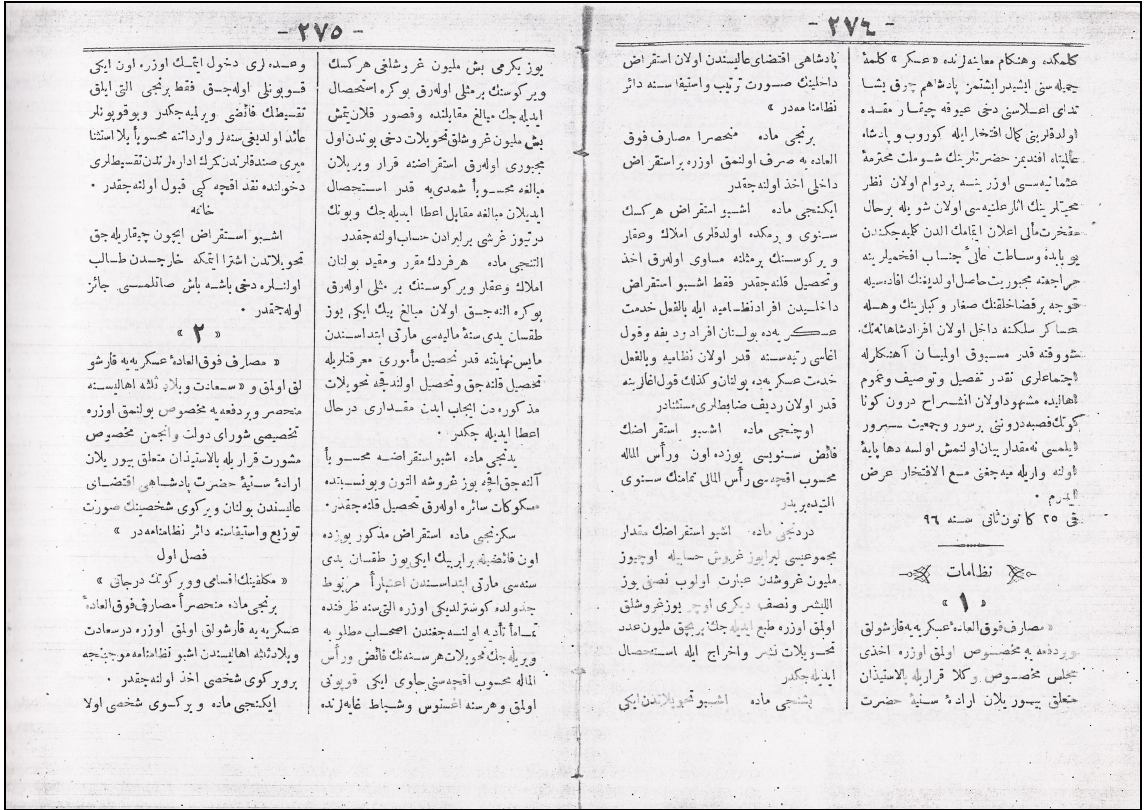 - ٢٧٦ -
كلمكده وهنكام معاينه لرنده «عسكر» كلمۀ
جميله سنى ايشيدر ايشتمز پادشاهم چوق يشا
نداى اعلاسنى دخى عيوقه چيقمار مقده
اولدقلرينى كمال افتخار ايله كوروب و پادشاه
عالمپناه افندمز حضرتلرينك شوملت محترمۀ
عثمانيه سى اوزرينه بردوام اولان نظر
محبتلرينك آثار علنيه سى اولان شويله برحال
مفخرت مآلى اعلان ايتمامك الدن كلميه جكندن
بو بابده وساطت عالئ جناب افخميلرينه
مراجعته مجبوريت حاصل اولديغنك افاده سيله
قوجه برقضا خلقنك صغار وكبارينك وهله
عساكر سلكنه داخل اولان افراد شاهانه نك
شووقته قدر مسبوق اولميان آهنكلرله
اجتماعلرى نقدر تفصيل وتوصيف وعموم
اهاليده مشهود اولان انشراح درون كونا
كونك قصبه دروننى پرسور وجمعيت سرور
ايلمسى نه مقدار بيان اولنمش اولسه دها پايۀ
اولنه واريله ميه جغنى مع الافتخار عرض
ايدرم .
فى ٢٥ كانون ثانى سنه ٩٦
نظامات
« ١ »
« مصارف فوق العادۀ عسكريه يه قارشولق
وبردفعه يه مخصوص اولمق اوزره اخذى
مجلس مخصوص وكلا قراريله بالاستيذان
متعلق بيوريلان ارادۀ سنيۀ حضرت
پادشاهى اقتضاى عاليسندن اولان استقراض
داخلينك صورت ترتيب واستيفاسنه دائر
نظامنامه در »
برنجى ماده منحصرا مصارف فوق
العاده يه صرف اولنمق اوزره براستقراض
داخلى اخذ اولنه جقدر
ايكنجى ماده اشبو استقراض هركسك
سنوى ويرمكده اولدقلرى املاك وعقار
و ويركوسنك برمثلنه مساوى اوله رق اخذ
وتحصيل قلنه جقدر فقط اشبو استقراض
داخليدن افراد نظاميه ايله بالفعل خدمت
عسكريه ده بولنان افراد رديفه وقول
اغاسى رتبه سنه قدر اولان نظاميه وبالفعل
خدمت عسكريه ده بولنان وكذلك قول اغالرينه
قدر اولان رديف ضابطلرى مستثنادر
اوچنجى ماده اشبو استقراضك
فائض سنويسى يوزده اون ورأس الماله
محسوب اقچه سى رأس المالى تمامنك سنوى
التيده بريدر
دردنجى ماده اشبو استقراضك مقدار
مجموعيسى ليرايوز غروش حسابيله اوچيوز
مليون غروشدن عبارت اولوب نصفى يوز
الليشر ونصف ديكرى اوچر يوزغروشلق
اولمق اوزره طبع ايديله جك بربچق مليون عدد
تحويلات نشر واخراج ايله استحصال
ايديله جكدر
بشنجى ماده اشبو تحويلاتدن ايكى
- ٢٧٥ -
يوز يكرمى بش مليون غروشلغى هركسك
ويركوسنك برمثلى اوله رق بوكره استحصال
ايديله جك مبالغ مقابلنده وقصور قلان يتمش
بش مليون غروشلق تحويلات دخى بوندن اول
مجبورى اوله رق استقراضنه قرار ويريلان
مبالغه محسوباً شمدى يه قدر استحصال
ايديلان مبالغه مقابل اعطا ايديله جك وبونك
درتيوز غرشى برليرادن حساب اولنه جقدر
التنجى ماده هر فردك مقرر ومقيد بولنان
املاك وعقار ويركوسنك بر مثلى اوله رق
بوكره النه جق اولان مبالغ بيك ايكى يوز
طقسان يدى سنۀ ماليه سى مارتى ابتداسندن
مايس نهايتنه قدر تحصيل مأمورى معرفتلريله
تحصيل قلنه جق وتحصيل اولندقجه تحويلات
مذكوره دن ايجاب ايدن مقدارى درحال
اعطا ايديله جكدر .
يدنجى ماده اشبو استقراضه محسوباً
آلنه جق اقچه يوز غروشه التون وبونسبتده
مسكوكات سائره اوله رق تحصيل قلنه جقدر .
سكزنجى ماده استقراض مذكور يوزده
اون فائضيله برابر بيك ايكى يوز طقسان يدى
سنه سى مارتى ابتداسندن اعتباراً مربوط
جدولده كوسترلديكى اوزره التى سنه ظرفنده
تماماً تأديه اولنه جغندن اصحاب مطلوبه
ويريله جك تحويلات هر سنه نك فائض ورأس
الماله محسوب اقچه سنى حاوى ايكى قوپونى
اولمق وهر سنه اغستوس وشباط غايه لرنده
وعده لرى دخول ايتمك اوزره اون ايكى
قوپونلى اوله جق فقط برنجى التى آيلق
تقسيطك فائضى ويرلميه جكدر وبوقوپونلر
عائد اولديغى سنه لر وارداتنه محسوباً بلا استثنا
ميرى صندقلرندن كرك اداره لرندن تقسيطلرى
دخولنده نقد اقچه كبى قبول اولنه جقدر .
خاتمه
اشبو استقراض ايچون چيقاريله جق
تحويلاتدن اشترا ايتمكه خارجدن طالب
اولنلره دخى باشه باش صاتلمسى جائز
اوله جقدر .
« ٢ »
« مصارف فوق العادۀ عسكريه يه قارشو
لق اولمق و « سعادت وبلاد ثلثه اهاليسنه
منحصر وبردفعه يه مخصوص بولنمق اوزره
تخصيصى شوراى دولت وانجمن مخصوص
مشورت قراريله بالاستيذان متعلق بيوريلان
ارادۀ سنيۀ حضرت پادشاهى اقتضاى
عاليسندن بولنان ويركوى شخصينك صورت
توزيع واستيفاسنه دائر نظامنامه در »
فصل اول
« مكلفينك اقسامى وويركونك درجاتى »
برنجى ماده منحصراً مصارف فوق العادۀ
عسكريه يه قارشولق اولمق اوزره درسعادت
وبلاد ثلثه اهاليسندن اشبو نظامنامه موجبنجه
برويركوى شخصى اخذ اولنه جقدر .
ايكنجى ماده ويركوى شخصى اولا